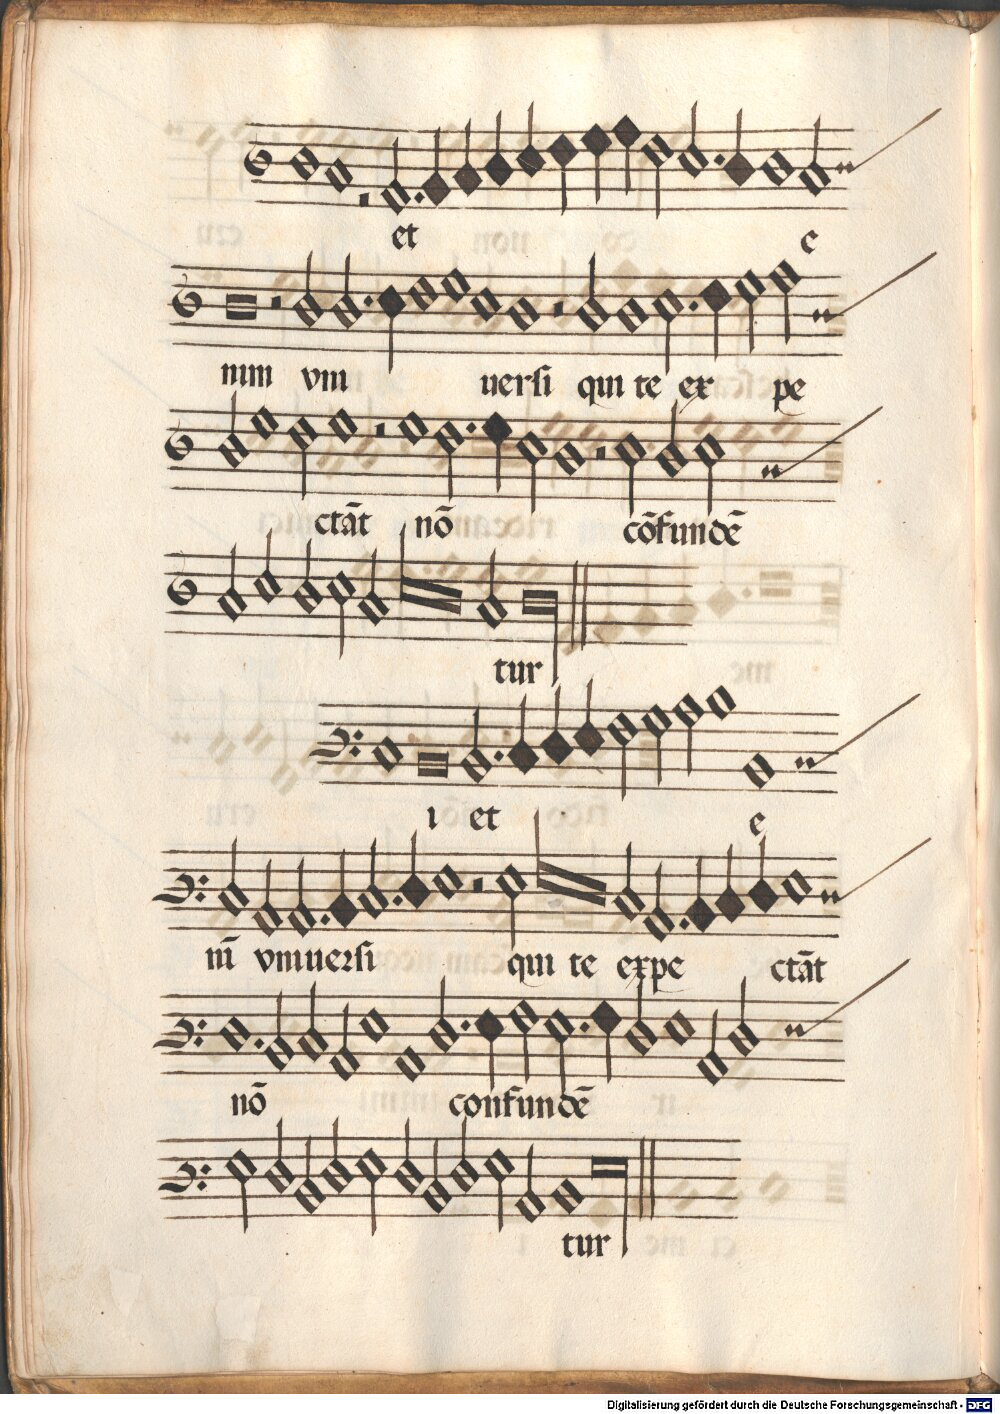 et e
nim vni uersi qui te ex pe
ctāt nō cōfundē
tur
i et e
nī vniuersi qui te expe ctāt
nō confundē
tur
Digitalisierung gefördert durch die Deutsche Forschungsgemeinschaft - DFG